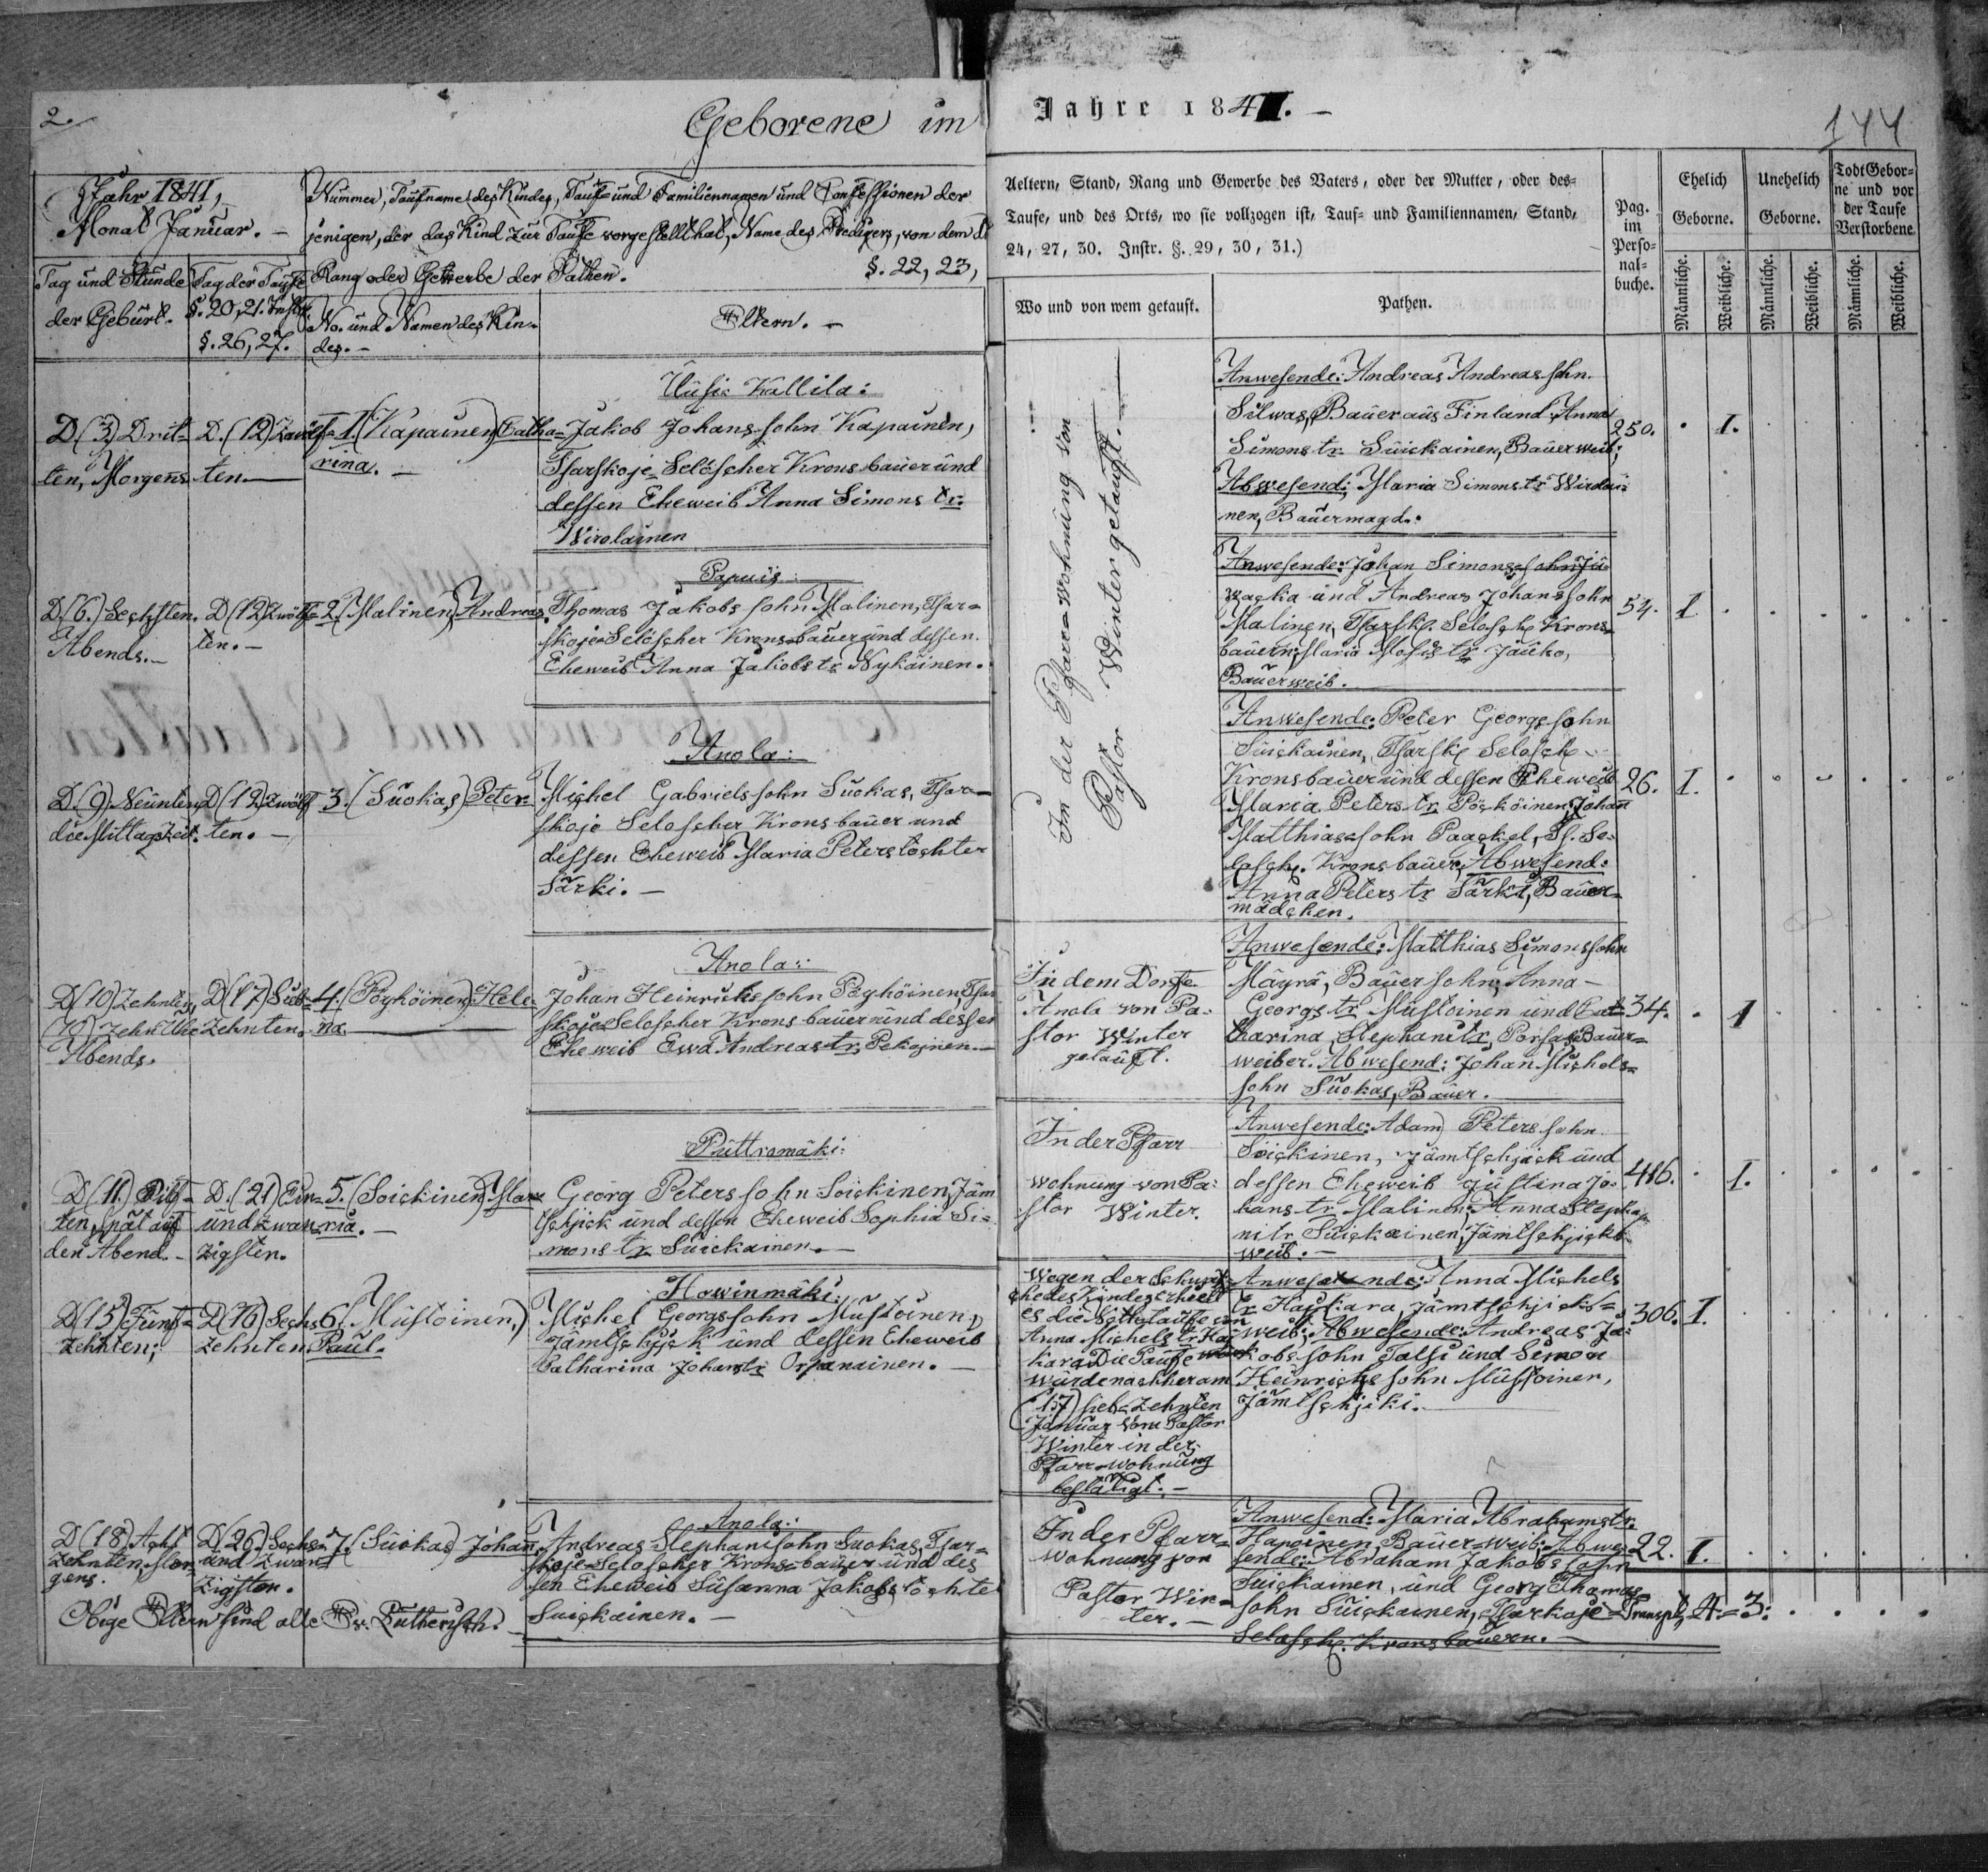 2.
Geborene im
Jahre 1841. –
144
Jahr 1841,
Monat Januar. –
Nummer, Taufname des Kindes, Tauf- und Familiennamen und Confessionen der
jenigen, der das Kind zur Taufe vorgestellt hat, Name des Predigers, von dem d
Rang oder Gewerbe der Pathen.
§. 22, 23,
Tag und Stunde
der Geburt.
Tag der Taufe
§. 20, 21. Instr.
§. 26, 27.
No. und Namen des Kin-
des. –
Eltern. –
Aeltern, Stand, Rang und Gewerbe des Vaters, oder der Mutter, oder des-
Taufe, und des Orts, wo sie vollzogen ist, Tauf- und Familiennamen, Stand,
24, 27, 30. Instr. §. 29, 30, 31.)
Wo und von wem getauft.
Pathen.
Pag.
im
Perso-
nal-
buche.
Ehelich
Geborne.
Unehelich
Geborne.
Todt Gebor-
ne und vor
der Taufe
Verstorbene
Männliche.
Weibliche.
Männliche.
Weibliche.
Männliche.
Weibliche.
D (3) Drit-
ten, Morgens
D. (12) Zwölf-
ten.
1. (Kapainen) Catha-
rina. –
Uusi-Kallila:
Jakob Johanssohn Kapainen,
Tsarskoje-Seloscher Kronsbauer und
dessen Eheweib Anna Simons tr.
Wirolainen
In der Pfarr-Wohnung von
Pastor Winter getauft. –
Anwesende: Andreas Andreassohn
Silwas, Bauer aus Finland, Anna
Simons tr. Suickainen, Bauerweib;
Abwesend: Maria Simons tr Wirolai-
nen, Bauermagd.
250. 1.
D (6.) Sechsten,
Abends. –
D (12) Zwölf-
ten. –
2. (Malinen) Andreas.
Papuis:
Thomas Jakobssohn Malinen, Tsar-
skoje-Seloscher Kronsbauer und dessen
Eheweib Anna Jakobs tr. Nykäinen.
Anwesende: Johan Simonssohn Ju-
wacka und Andreas Johanssohn
Malinen, Tsarsk. Selosch. Krons-
bauern; Maria Mosis tr Jauko,
Bauerweib.
54. 1
D. (9) Neunten,
die Mittagszeit.
D (12) Zwölf
ten. –
3. (Suokas) Peter
Anola:
Michel Gabrielssohn Suokas, Tsar-
skoje Seloscher Kronsbauer und
dessen Eheweib Maria Peterstochter
Särki. –
Anwesende: Peter Georgssohn
Suickainen, Tsarsk. Selosch.
Kronsbauer und dessen Eheweib
Maria Peters tr Pöyhöinen, Johan
Matthiassohn Paackel, Ts. Se-
losch. Kronsbauer, Abwesend:
Anna Peters tr Särki, Bauer-
mädchen.
26. 1.
D (10) Zehnten,
(10) Zehn Uhr
Abends.
D (17) Sieb-
zehnten.
4. (Pöyhöinen) Hele-
na.
Anola:
Johan Heinrichssohn Pöyhöinen, Tsar
skoje-Seloscher Kronsbauer und dessen
Eheweib Ewa Andreas tr. Pekoinen. –
In dem Dorfe
Anola von Pa-
stor Winter
getauft.
Anwesende: Matthias Simonssohn
Mäyrä, Bauersohn, Anna
Georgs tr. Mustoinen und Cat-
harina Stephani tr. Porsas, Bauer-
weiber. Abwesend: Johan Michels-
sohn Suokas, Bauer.
34. 1
D (11.) Eilf-
ten, spät auf
den Abend. –
D. (21) Ein-
und zwan-
zigsten.
5. (Soickinen) Ma-
ria. –
Puttromäki:
Georg Peterssohn Soickinen, Jäm
tschick und dessen Eheweib Sophia Si-
mons tr. Suickainen. –
In der Pfarr
wohnung von Pa-
stor Winter.
Anwesende: Adam Peterssohn
Soickinen, Jämtschick und
dessen Eheweib Justina Jo-
hans tr. Malinen, Anna Stepha-
ni tr. Suickainen, Jämtschicks
weib. –
416. 1.
D (15) Fünf-
zehnten;
D (16) Sechs
zehnten
6. (Mustoinen,)
Paul.
Howinmäki:
Michel Georgssohn Mustoinen,
Jämtschick und dessen Eheweib
Catharina Johans tr Orpanainen. –
Wegen der Schwä-
che des Kindes erhielt
es die Nothtaufe von
Anna Michels tr. Ha-
kara. Die Taufe
wurde nachher am
(17) sieb-zehnten
Januar vom Pastor
Winter in der
Pfarrwohnung
bestätigt. –
Anwesende: Anna Michels
tr. Hackara, Jämtschicks-
weib; Abwesende: Andreas Ja-
kobssohn Talsi und Simon
Heinrichssohn Mustoinen,
Jämtschiki.
306. 1.
D (18) Acht
zehnten, Mor-
gens.
D. (26.) Sechs-
und zwan-
zigsten.
7. (Suokas) Johan
Anola:
Andreas Stephanisohn Suokas, Tsar-
skoje-Seloscher Kronsbauer und des
sen Eheweib Susanna Jakobstochter
Suickainen. –
In der Pfarr-
wohnung von
Pastor Win-
ter. –
Anwesend: Maria Abrahams tr.
Hapoinen, Bauer-weib; Abwe-
sende: Abraham Jakobssohn
Suickainen, und Georg Thomas
sohn Suickainen, Tsarskoje-
Selosch. Kronsbauern. –
22. 1.
Obige Eltern sind alle Ev. Lutherisch. –
Transpt. 4. = 3.